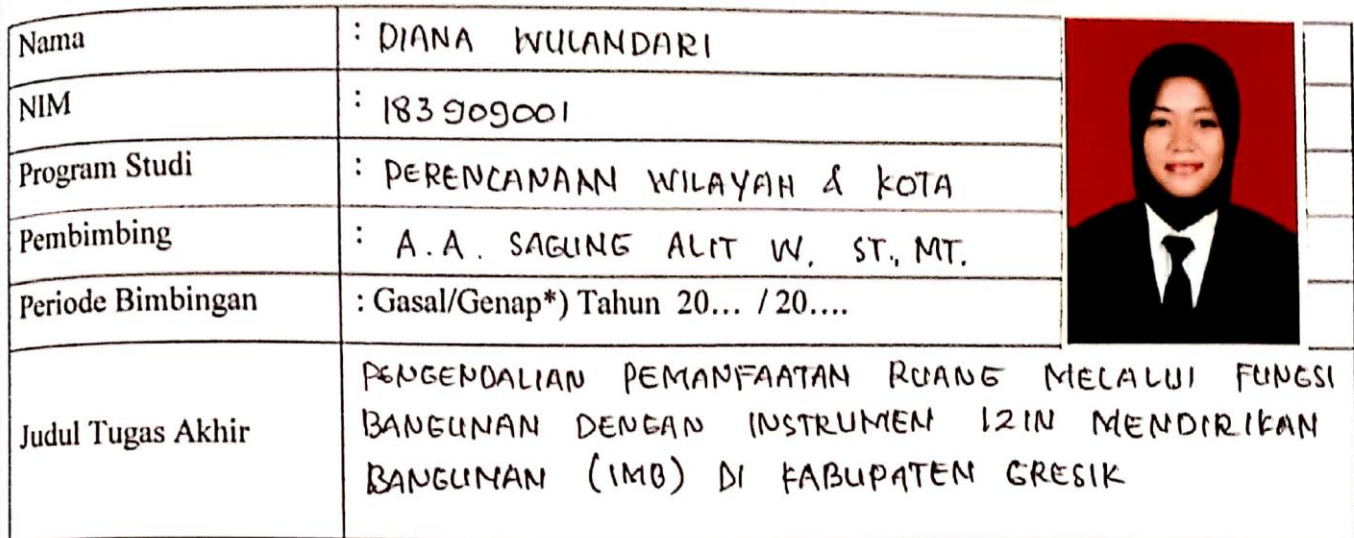 Nama : DIANA WULANDARI
NIM : 183909001
Program Studi : PERENCANAAN WILAYAH & KOTA
Pembimbing : A.A. SAGUNG ALIT W. ST., MT.
Periode Bimbingan : Gasal/Genap*) Tahun 20... / 20....
Judul Tugas Akhir
PENGENDALIAN PEMANFAATAN RUANG MELALUI FUNGSI
BANGUNAN DENGAN INSTRUMEN IZIN MENDIRIKAN
BANGUNAN (IMB) DI KABUPATEN GRESIK